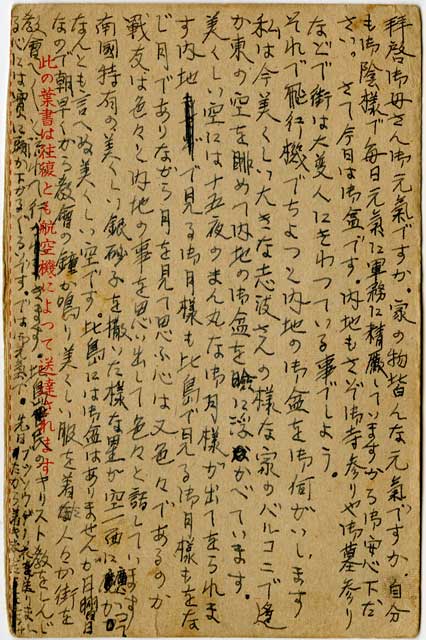 拝啓御母さん御元氣ですか。家の物皆んな元氣ですか。自分
も御陰様で毎日元氣に軍務に精励していますから御安心下
さい。さて今日は御盆です。内地もさぞ御寺参りや御墓参り
などで街は大変人にぎわっている事でしょう。
それで飛行機でちよつと内地の御盆を御何がいします
私は今美くしい大きな志波さんの様な家のバルコニで遥
か東の空を眺めて内地の御盆を瞼に浮かべています。
美くしい空には十五夜のまん丸な御月様が出てをられま
す内地で見る御月様も比島で見る御月様もをな
じ月でありながら月を見て思ふ心は又色々であるのか
戦友は色々と内地の事を思い出して色々と話しています
南國特有の美くしい銀砂子を撒いた様な星が空一面に
なんとも言へぬ美くしい空です。比島には御盆はありませんが日曜
なので朝早くから教會の鐘が鳴り美くしい服を着た人々が街を
教會へ 行きます。 キリスト教をしんじ
る心には實に頭が下がるくらいです。では御元氣で。先日
此の葉書は往復とも航空機によつて送達されます